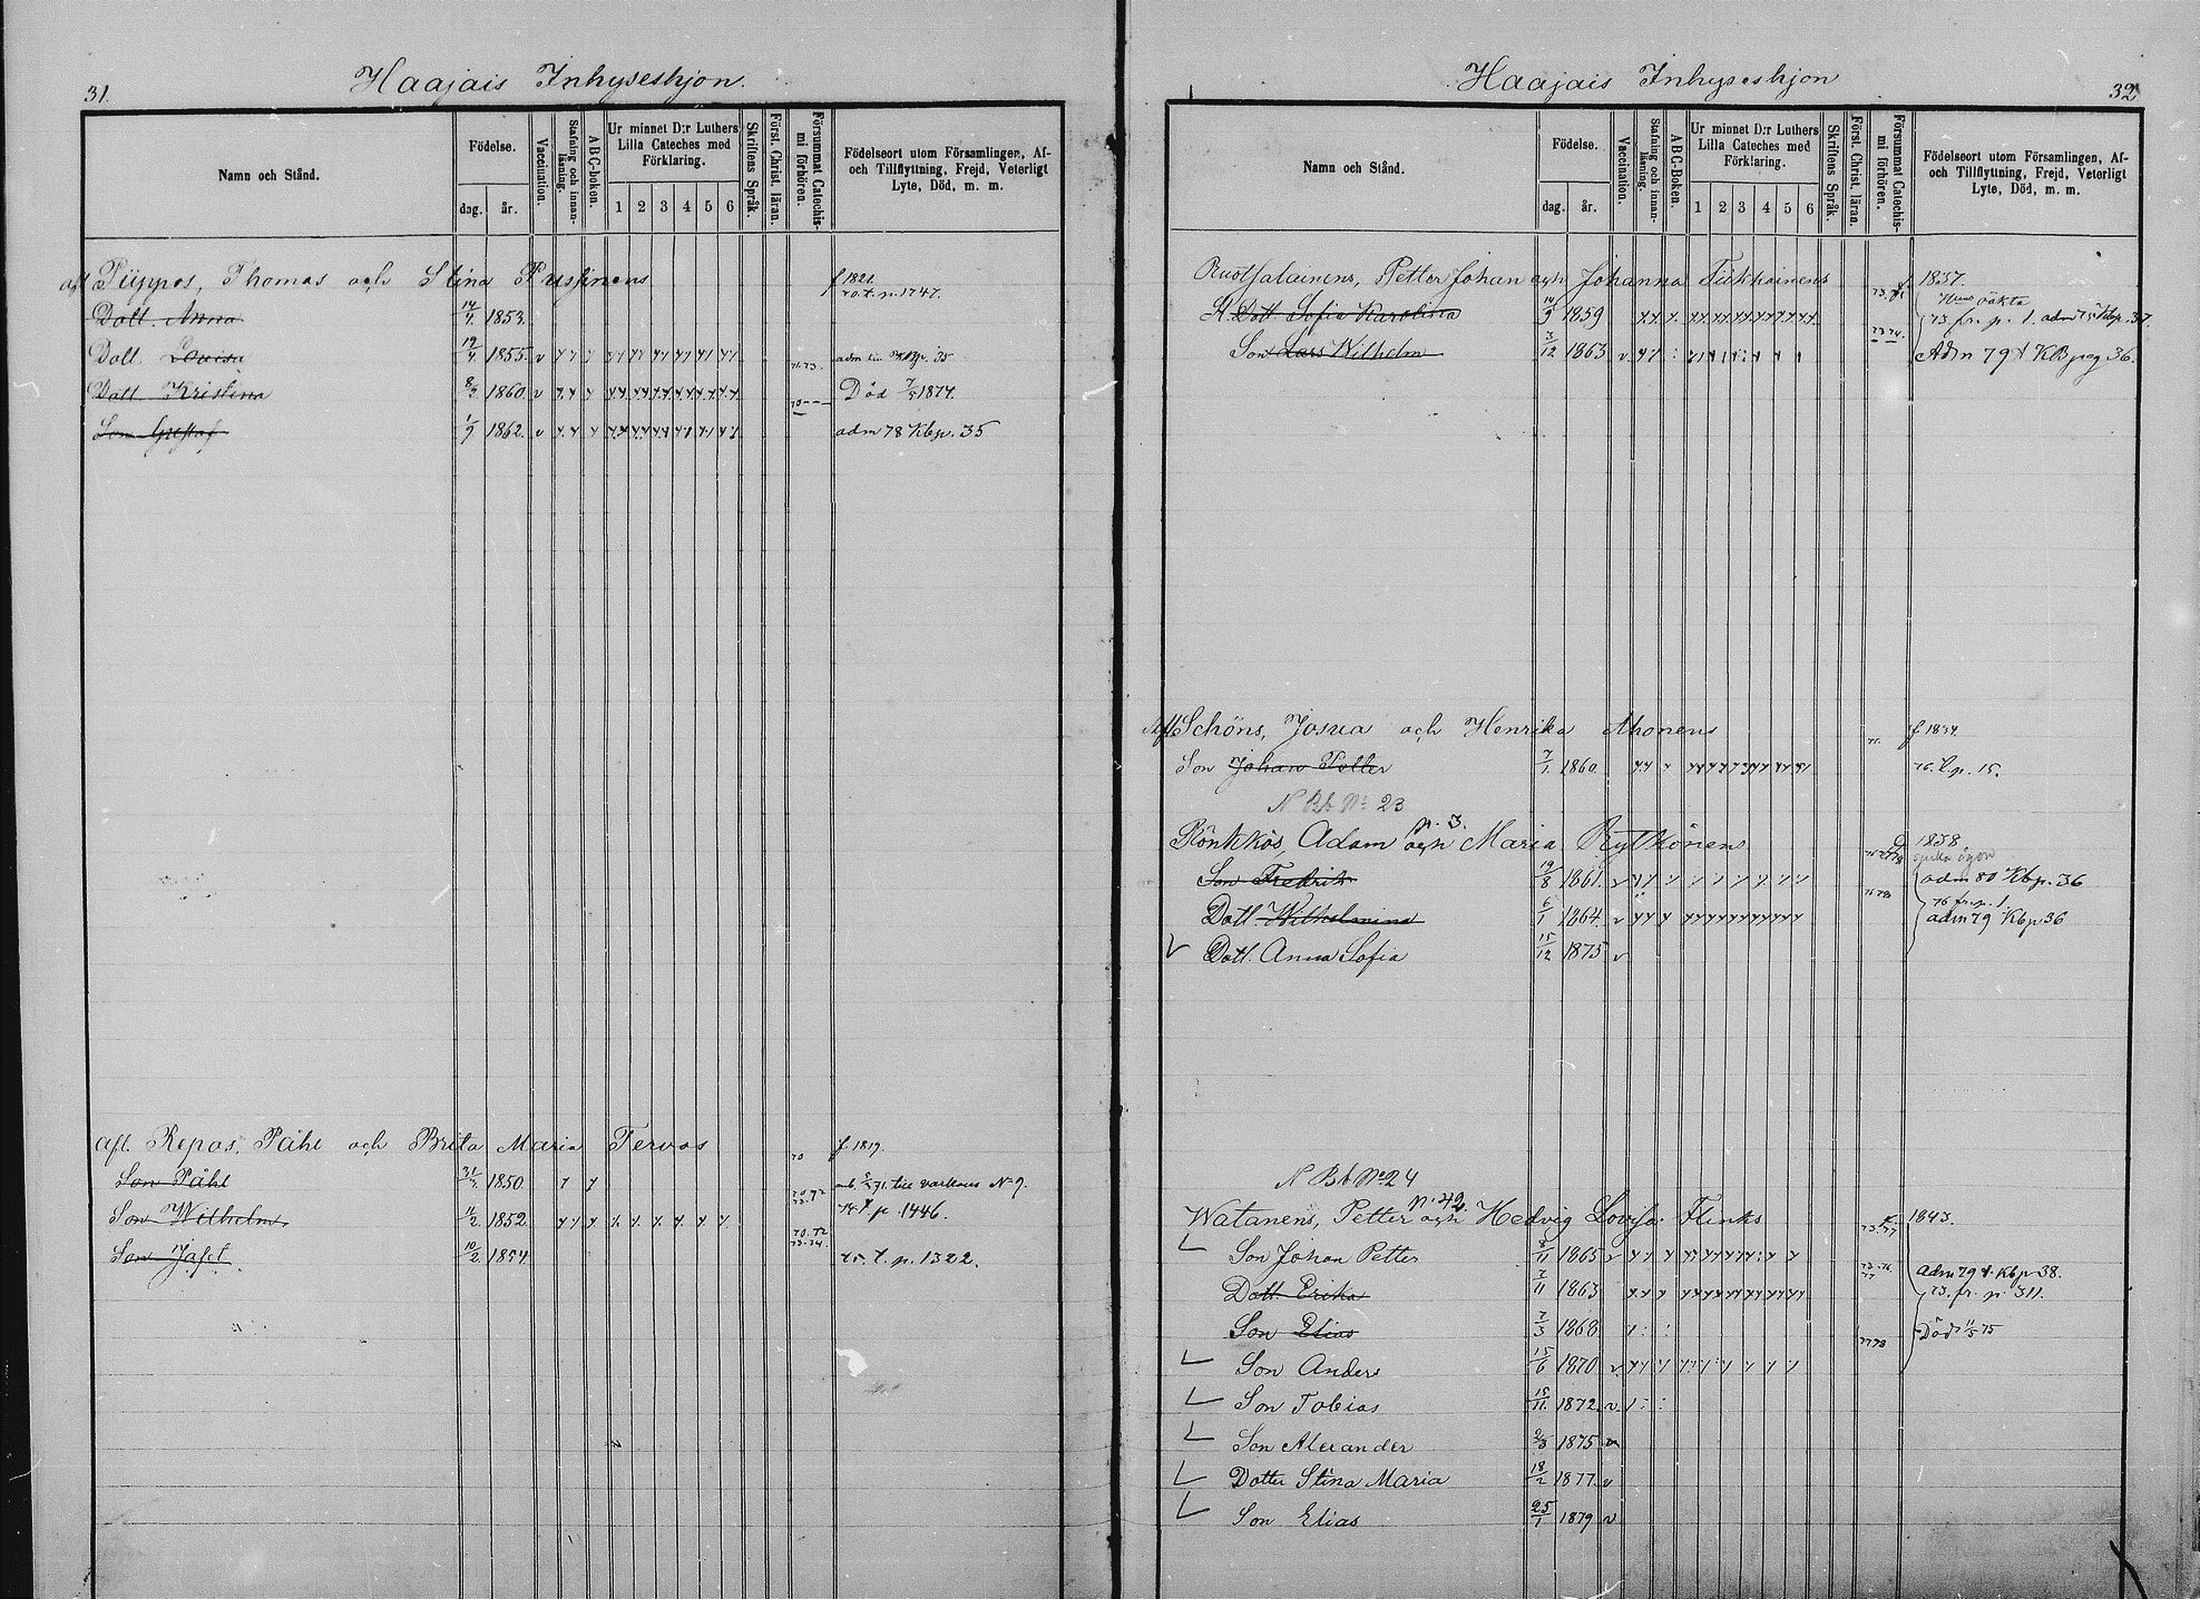 31.
Haajais Inhyseshjon.
Namn och Stånd.
Födelse.
dag. år.
Vaccination.
Stafning och innanläsning.
ABC-boken.
Ur minnet D:r Luthers
Lilla Cateches med
Förklaring.
1 2 3 4 5 6
Skriftens Språk.
Först. Christ. läran.
Försummat Catechismi förhören.
Födelseort utom Församlingen, Af-
och Tillflyttning, Frejd, Veterligt
Lyte, Död, m. m.
afl. Piippos, Thomas och Stina Pussinens f 1821.
Dott. Anna 14/1 1853. 70. t. p. 1747.
Dott. Lovisa 1855. v 71.73. p. 35
Dott. Kristina 1860 v Död 7/5 1874.
Son Gustaf 1/9 1862. v adm 78 Kbp. 35
afl. Repos, Påhl och Brita Maria Tervos 70 f. 1819.
Son Påhl 1850 till Varkaus No 9.
Son Wilhelm 11/2 1852 p. 1446.
Son Jafet 10/2 1854 t. p. 1322.
32
Haajais Inhyseshjon
Namn och Stånd.
Födelse.
dag. år.
Vaccination.
Stafning och innanläsning.
ABC-Boken.
Ur minnet D:r Luthers
Lilla Cateches med
Förklaring.
1 2 3 4 5 6
Skriftens Språk.
Först. Christ. läran.
Försummat Catechismi förhören.
Födelseort utom Församlingen, Af-
och Tillflyttning, Frejd, Veterligt
Lyte, Död, m. m.
Ruotsalainens, Petter Johan och Johanna Tiikkainens 1837.
Dott. Sofia Karolina 14/9 1859 oäkta 73 fr. p. 1. adm 75 Kbp. 37.
Son Lars Wilhelm 3/12 1863 v 73 74. Adm 79 KB pag 36.
Afl. Schöns, Josua och Henrika Ahonens 71. f 1834
Son Johan Petter 7/1 1860. 76. t. p. 15.
N Bb No 23
Rönkkös, Adam och p. 3. Maria Rytkönens 1838
Son Fredrik 19/8 1861. v sjuka ögon adm 80 Kbp. 36
Dott. Wilhelmina 6/1 1864. v 76 fr. p. 1. adm 79 Kbp 36
v Dott. Anna Sofia 15/12 1875 v
N Bb No 24
Watanens, Petter och p. 42. Hedvig Lovisa Flinks 1843.
Son Johan Petter 8/11 1865 v
Dott. Erika 2/11 1863 adm 79 t. Kbp 38. 73. fr. p. 311.
Son Elias 7/3 1868 Död 11/5 75
Son Anders 15/6 1870 v 77 78
Son Tobias 15/11. 1872. v
Son Alexander 2/3 1875 v
Dotter Stina Maria 18/2 1877. v
Son Elias 25/1 1879 v